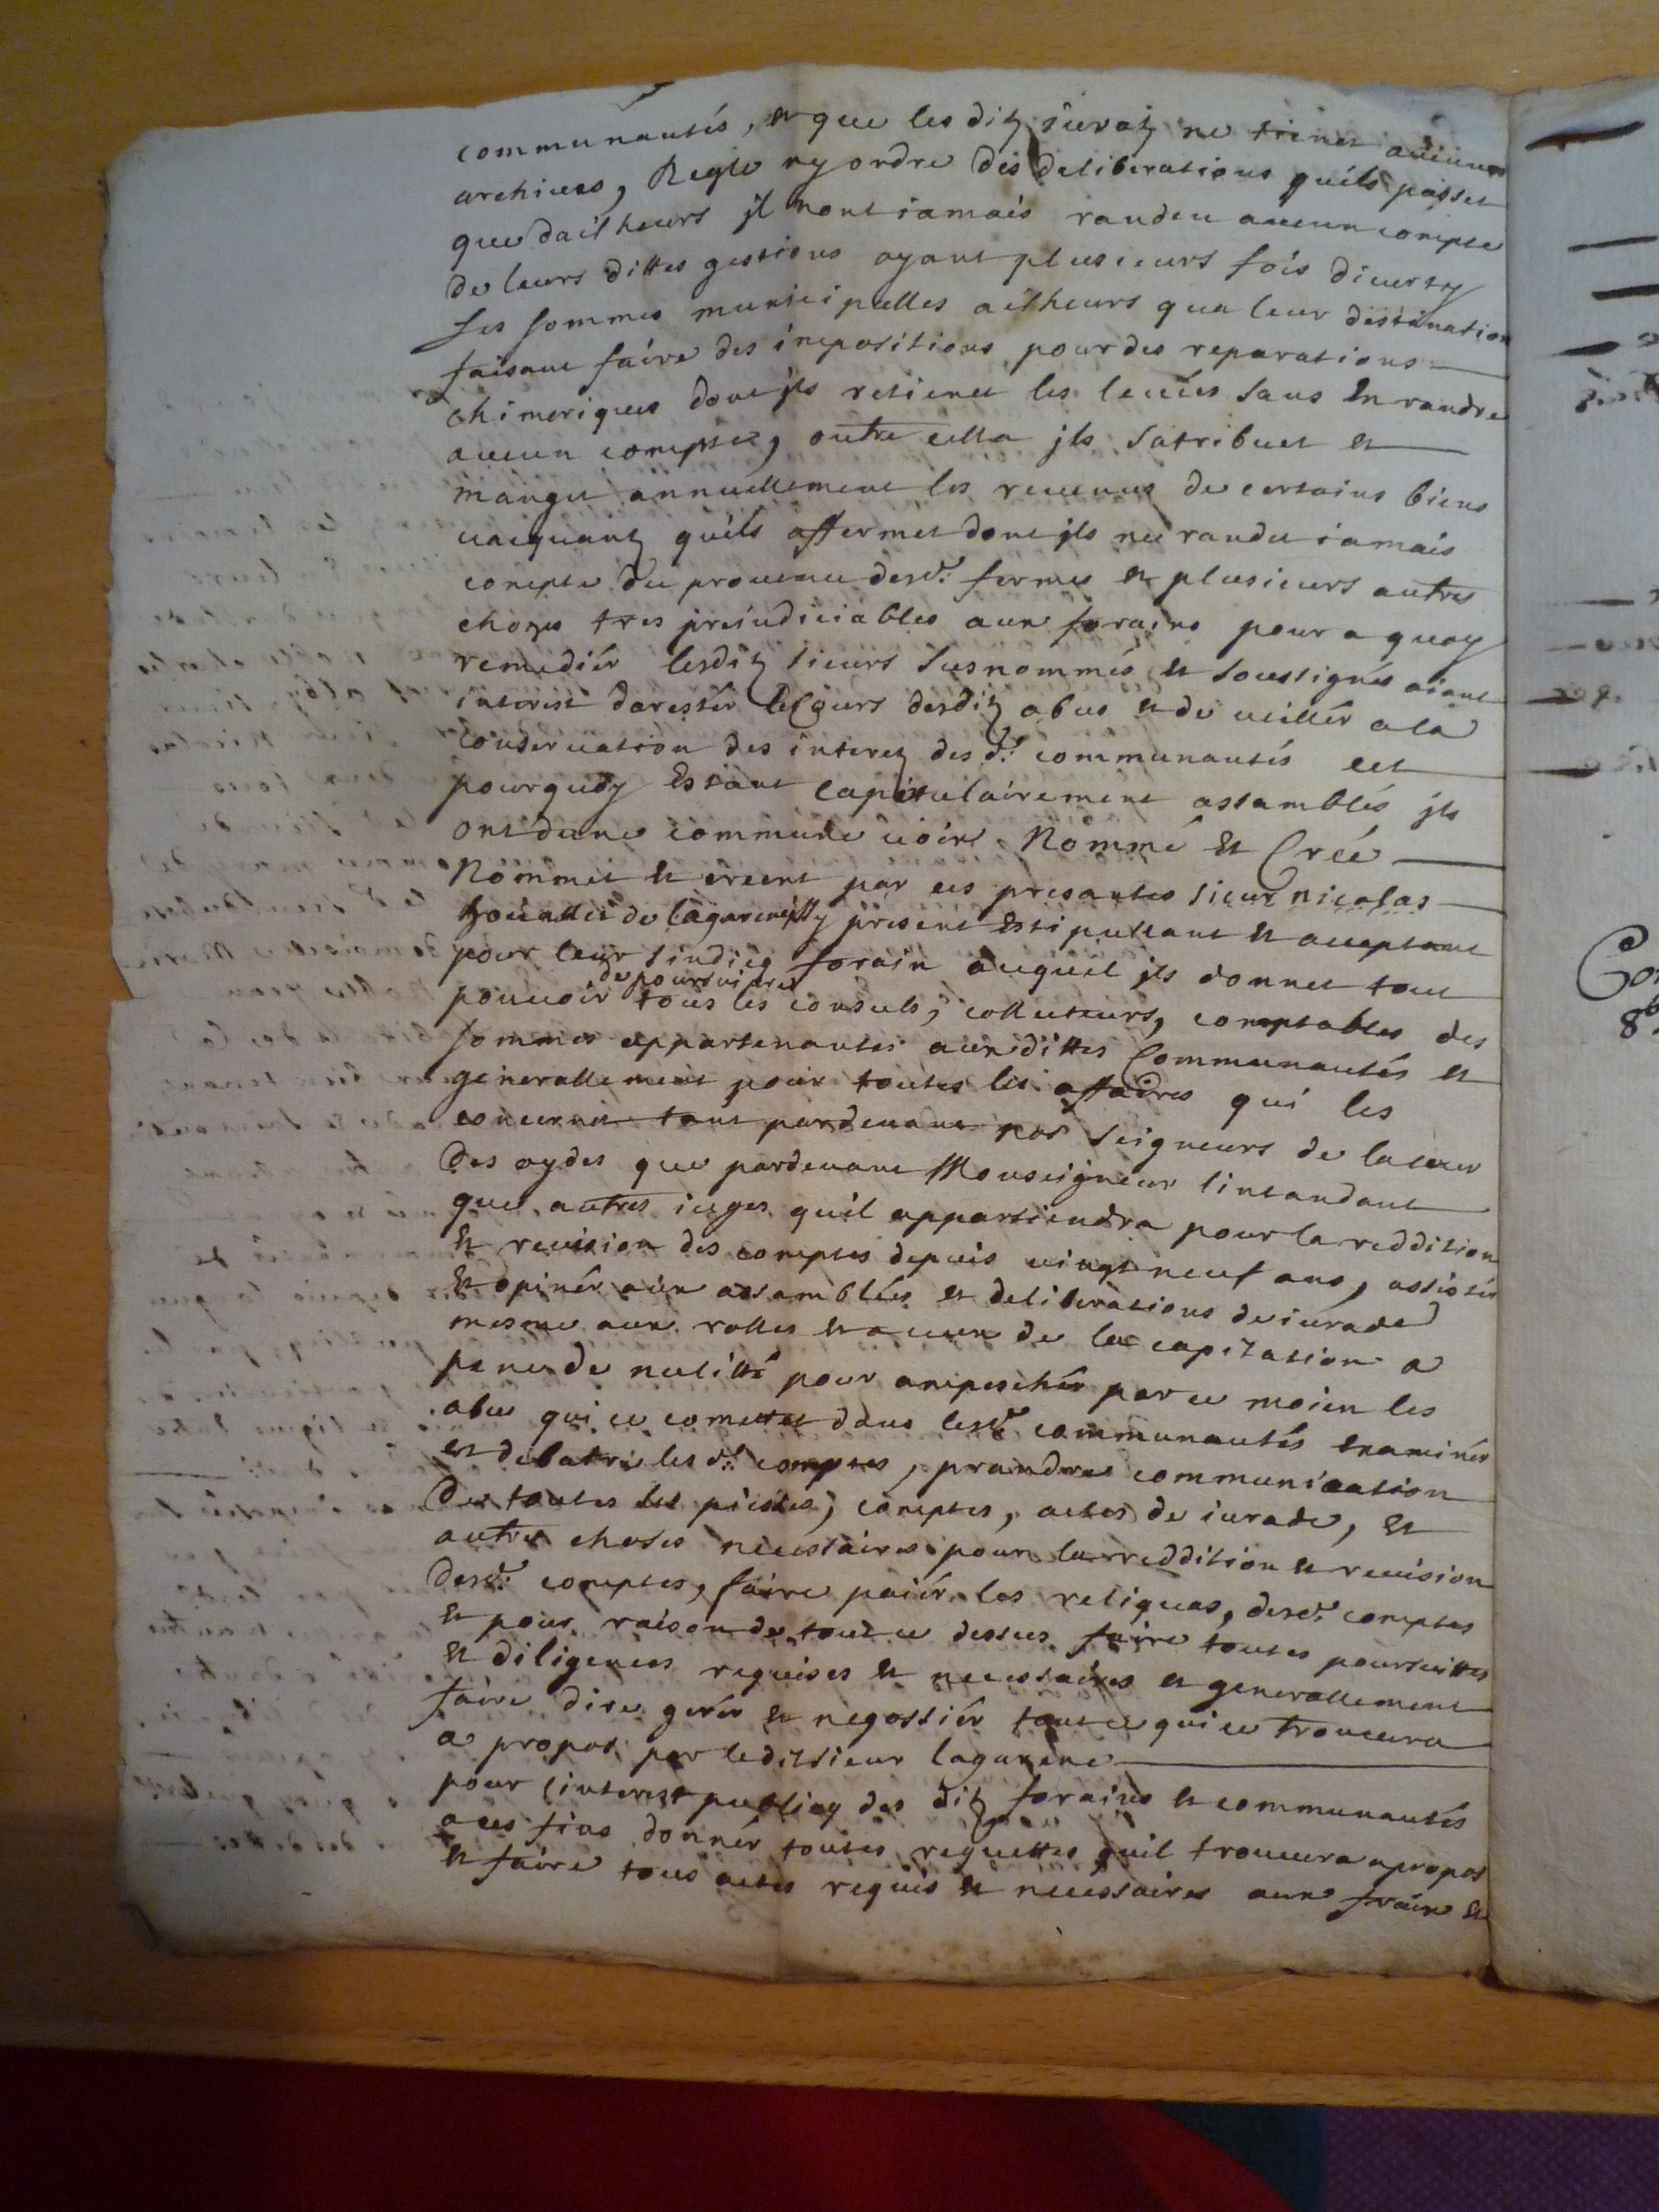 communautés, et que les ditz juratz ne tienet aucunes
archives, Regle ny ordre des deliberations quils passet
que dailheurs jl nont iamais randeu aucun compte
de leurs dittes gestions ayant plusieurs fois diverty
les sommes municipalles ailheurs qua leur destination
faisant faire des impositions pour des reparations
chimeriques dont jls retienet les levées sans En randre
aucun compte, outre cella jls satribuet et
manget annuellement les revenus de certains biens
vacquantz quils affermet dont jls ne randet iamais
compte du provenu desd.s fermes et plusieurs autres
chozes tres preiudiciables aux forains pour a quoy
remediér lesditz sieurs susnommés et soussignés aiant
interest darestér le Cours desditz abus et de veillér a la
conservation des interetz desd.s communautés est
pourquoy Estant capitulairement assamblés jls
ont dune commune voix Nommé et Créé
Nommet et creent par ces presantes sieur nicolas
de lagarene jcy present Estipullant et acceptant
pour leur sindicq forain auquel jls donnet tout
de poursuivre
pouvoir tous les consuls, collecteurs, comptables des
sommes appartenantes aux dittes Communautés et
generallement pour toutes les affaires qui les
concernet tant pardevant nos seigneurs de la cour
Des aydes que pardevant Monseigneur lintandant
que autres iuges quil appartiendra pour la reddition
et revision des comptes depuis vingt neuf ans, assistér
et opinér aux assamblées et deliberations de iurade
mesme aux rolles et a ceux de la capitation a
pene de nulitté pour ampeschér par ce moien les
abus qui ce comettet dans lesd. communautés examinér
et debatre lesd.s comptes, prandre communication
De toutes les piesses, comptes, actes de iurade, et
autres choses necessaires pour la reddition et revision
Desd.s comptes, faire paiér les reliquas, desd.s comptes
et pour raison de tout ce dessus faire toutes poursuittes
et diligences requises et necessaires et generallement
faire dire gerér et negossiér tout ce qui ce trouvera
a propos par ledit sieur lagarene
pour linterest publicq des ditz forains et communautés
a ces fins donnér toutes requettes quil trouvera apropos
et faire tous actes requis et necessaires aux forains et